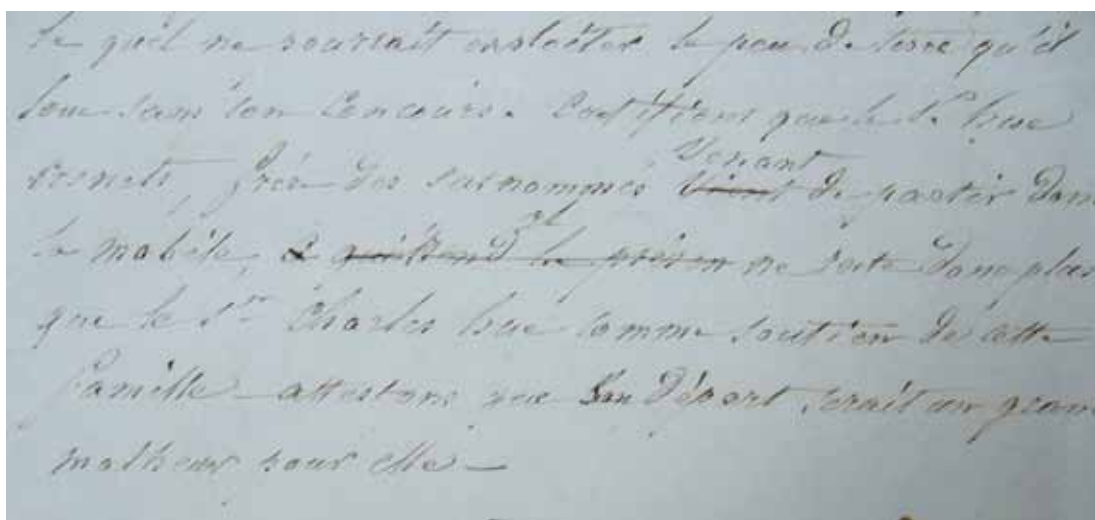 qu'il ne pourrait exploiter le peu de terre qu'il
loue sans son concours. Certifions que le Sr
frère des surnommés venant de partir dans
la mobile, il ne reste donc plus
que le Sr Charles comme soutien de cette
famille attestons que son départ serait un gran
malheur pour elle —